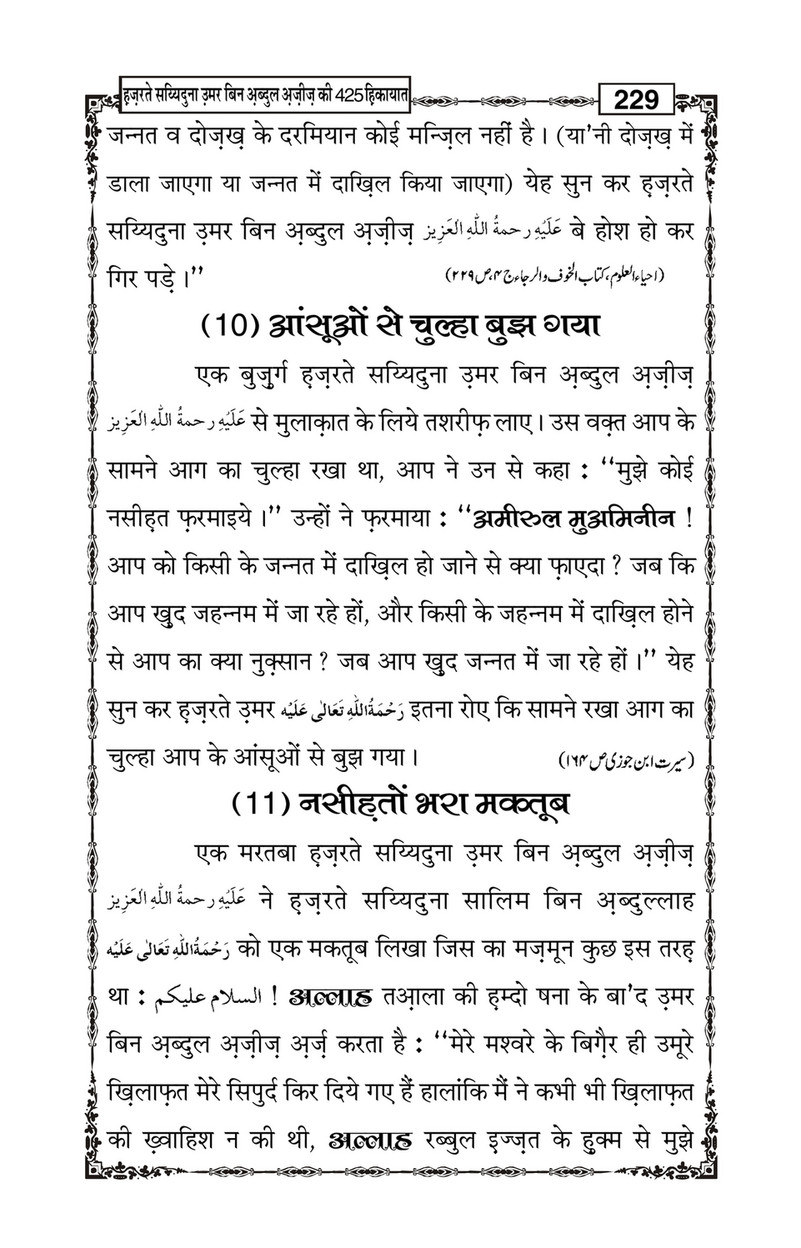 हज़रते सय्यिदुना उ़मर बिन अ़ब्दुल अ़ज़ीज़ की 425 हिकायात
229
जन्नत व दोज़ख़ के दरमियान कोई मन्ज़िल नहीं है। (या'नी दोज़ख़ में
डाला जाएगा या जन्नत में दाख़िल किया जाएगा) येह सुन कर ह़ज़रते
सय्यिदुना उ़मर बिन अ़ब्दुल अ़ज़ीज़ عَلَيْهِ رحمةُ اللهِ العَزِيز बे होश हो कर
गिर पड़े।" (احیاء العلوم، کتاب الخوف والرجاء ج ۴، ص ۲۲۹)
(10) आंसूओं से चुल्हा बुझ गया
एक बुज़ुर्ग ह़ज़रते सय्यिदुना उ़मर बिन अ़ब्दुल अ़ज़ीज़
عَلَيْهِ رحمةُ اللهِ العَزِيز से मुलाक़ात के लिये तशरीफ़ लाए। उस वक़्त आप के
सामने आग का चुल्हा रखा था, आप ने उन से कहा : "मुझे कोई
नसीह़त फ़रमाइये।" उन्हों ने फ़रमाया : "अमीरुल मुअमिनीन !
आप को किसी के जन्नत में दाख़िल हो जाने से क्या फ़ाएदा ? जब कि
आप ख़ुद जहन्नम में जा रहे हों, और किसी के जहन्नम में दाख़िल होने
से आप का क्या नुक़्सान ? जब आप ख़ुद जन्नत में जा रहे हों।" येह
सुन कर ह़ज़रते उ़मर رَحْمَةُاللهِ تَعَالٰى عَلَيْه इतना रोए कि सामने रखा आग का
चुल्हा आप के आंसूओं से बुझ गया। (سیرت ابن جوزی ص ۱۶۴)
(11) नसीह़तों भरा मकतूब
एक मरतबा ह़ज़रते सय्यिदुना उ़मर बिन अ़ब्दुल अ़ज़ीज़
عَلَيْهِ رحمةُ اللهِ العَزِيز ने ह़ज़रते सय्यिदुना सालिम बिन अ़ब्दुल्लाह
رَحْمَةُاللهِ تَعَالٰى عَلَيْه को एक मकतूब लिखा जिस का मज़मून कुछ इस तरह़
था : السلام عليكم ! अल्लाह तआ़ला की ह़म्दो षना के बा'द उ़मर
बिन अ़ब्दुल अ़ज़ीज़ अ़र्ज़ करता है : "मेरे मश्वरे के बिग़ैर ही उमूरे
ख़िलाफ़त मेरे सिपुर्द किर दिये गए हैं हालांकि मैं ने कभी भी ख़िलाफ़त
की ख़्वाहिश न की थी, अल्लाह रब्बुल इज़्ज़त के हुक्म से मुझे